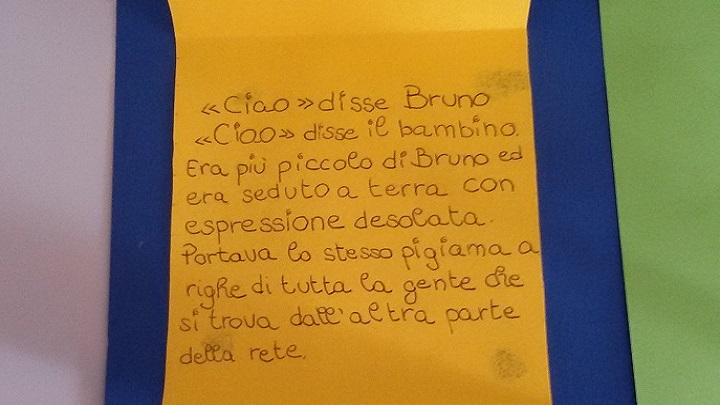 «Ciao» disse Bruno
«Ciao» disse il bambino.
Era più piccolo di Bruno ed
era seduto a terra con
espressione desolata.
Portava lo stesso pigiama a
righe di tutta la gente che
si trova dall'altra parte
della rete.